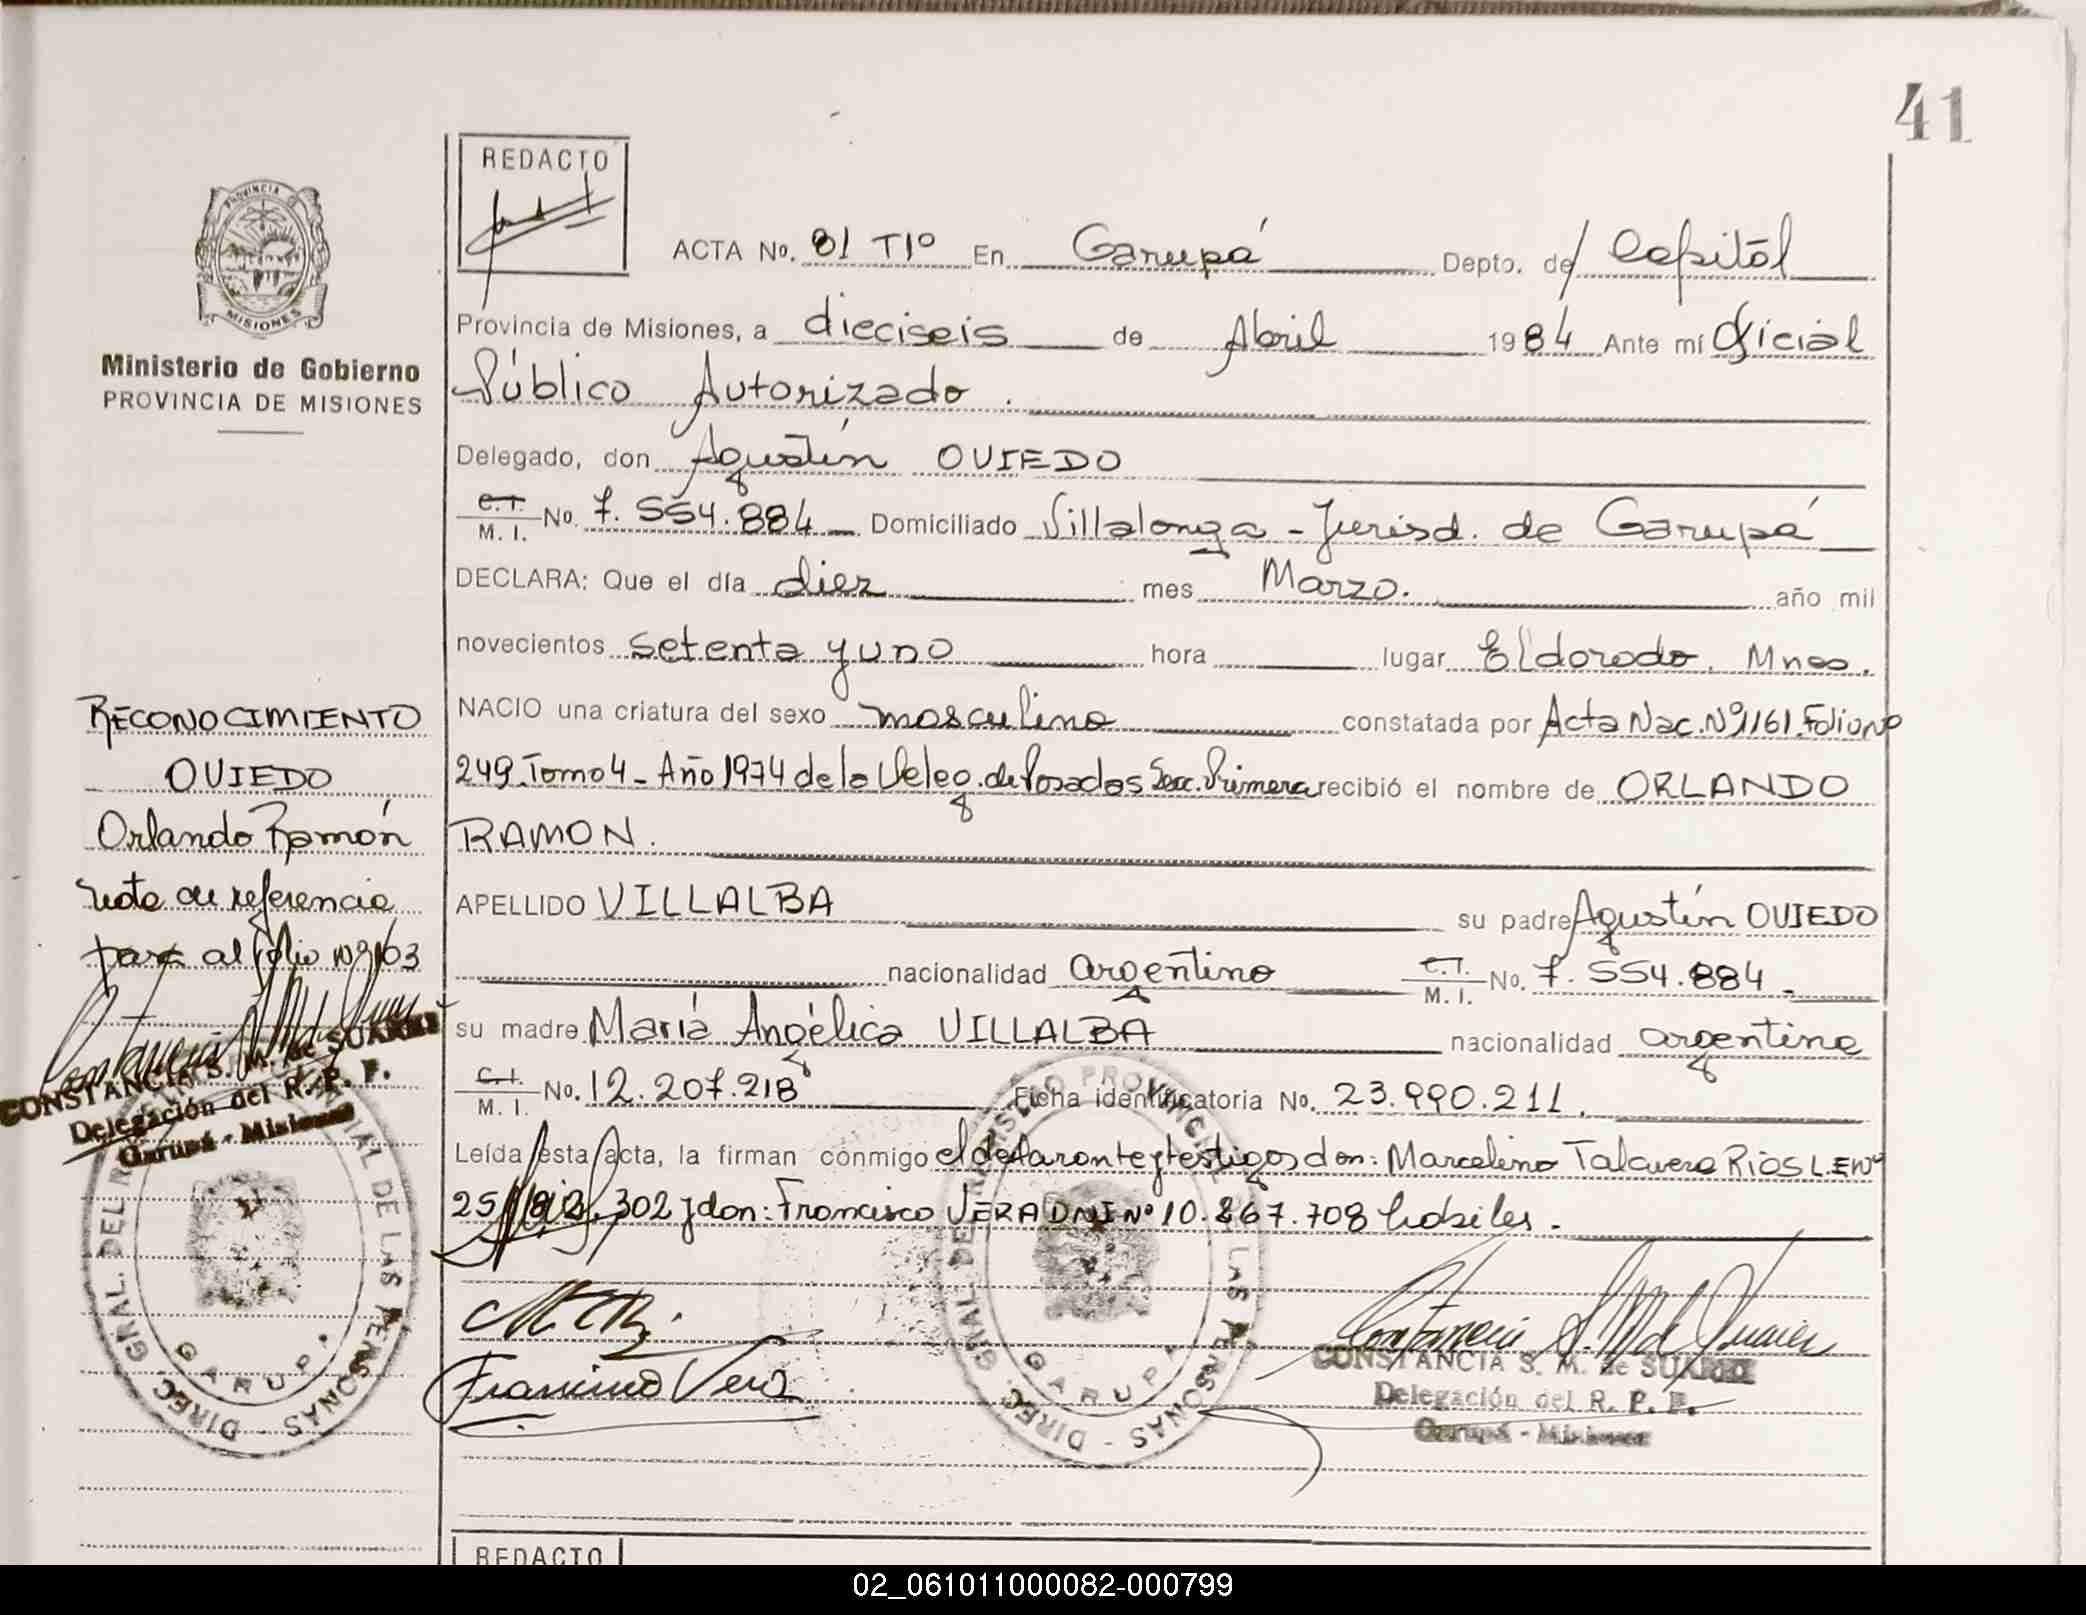 41
REDACTO
ACTA No. 81 T1º En Garupá Depto. de Capital
PROVINCIA
MISIONES
Ministerio de Gobierno
PROVINCIA DE MISIONES
Provincia de Misiones, a dieciseis de Abril 1984 Ante mí Oficial
Público Autorizado.
Delegado, don Agustín OVIEDO
C.I. M. I. No. 7.554.884 Domiciliado Villalonga - Jurisd. de Garupá
DECLARA: Que el día diez mes Marzo. año mil
novecientos setenta y uno hora lugar Eldorado. Mnes.
NACIO una criatura del sexo masculino constatada por Acta Nac. Nº 1161. Folio Nº
249. Tomo 4 - Año 1974 de la Deleg. de Posadas Secc. Primera recibió el nombre de ORLANDO
RAMON.
APELLIDO VILLALBA su padre Agustín OVIEDO
nacionalidad argentino C.I. M. I. No. 7.554.884 -
su madre María Angélica VILLALBA nacionalidad argentina
C.I. M. I. No. 12.207.218 Ficha identificatoria No. 23.990.211.
Leída esta Acta, la firman conmigo el declarante y testigos don: Marcelino Talavera Rios L.E Nº
302 y don: Francisco VERA DNI Nº 10.867.708 habiles.
RECONOCIMIENTO
OVIEDO
Orlando Ramón
Nota de referencia
pasa al folio Nº 103
CONSTANCIA S. M. de SUAREZ
Delegación del R. P. P.
Garupá - Misiones
DIREC. GRAL. DEL DE LAS PERSONAS
GARUPA
Francisco Vera
REGISTRO PROVINCIAL DE LAS PERSONAS - DIREC. GRAL. DEL
GARUPA
CONSTANCIA S. M. de SUAREZ
Delegación del R. P. P.
Garupá - Misiones
REDACTO
02_061011000082-000799